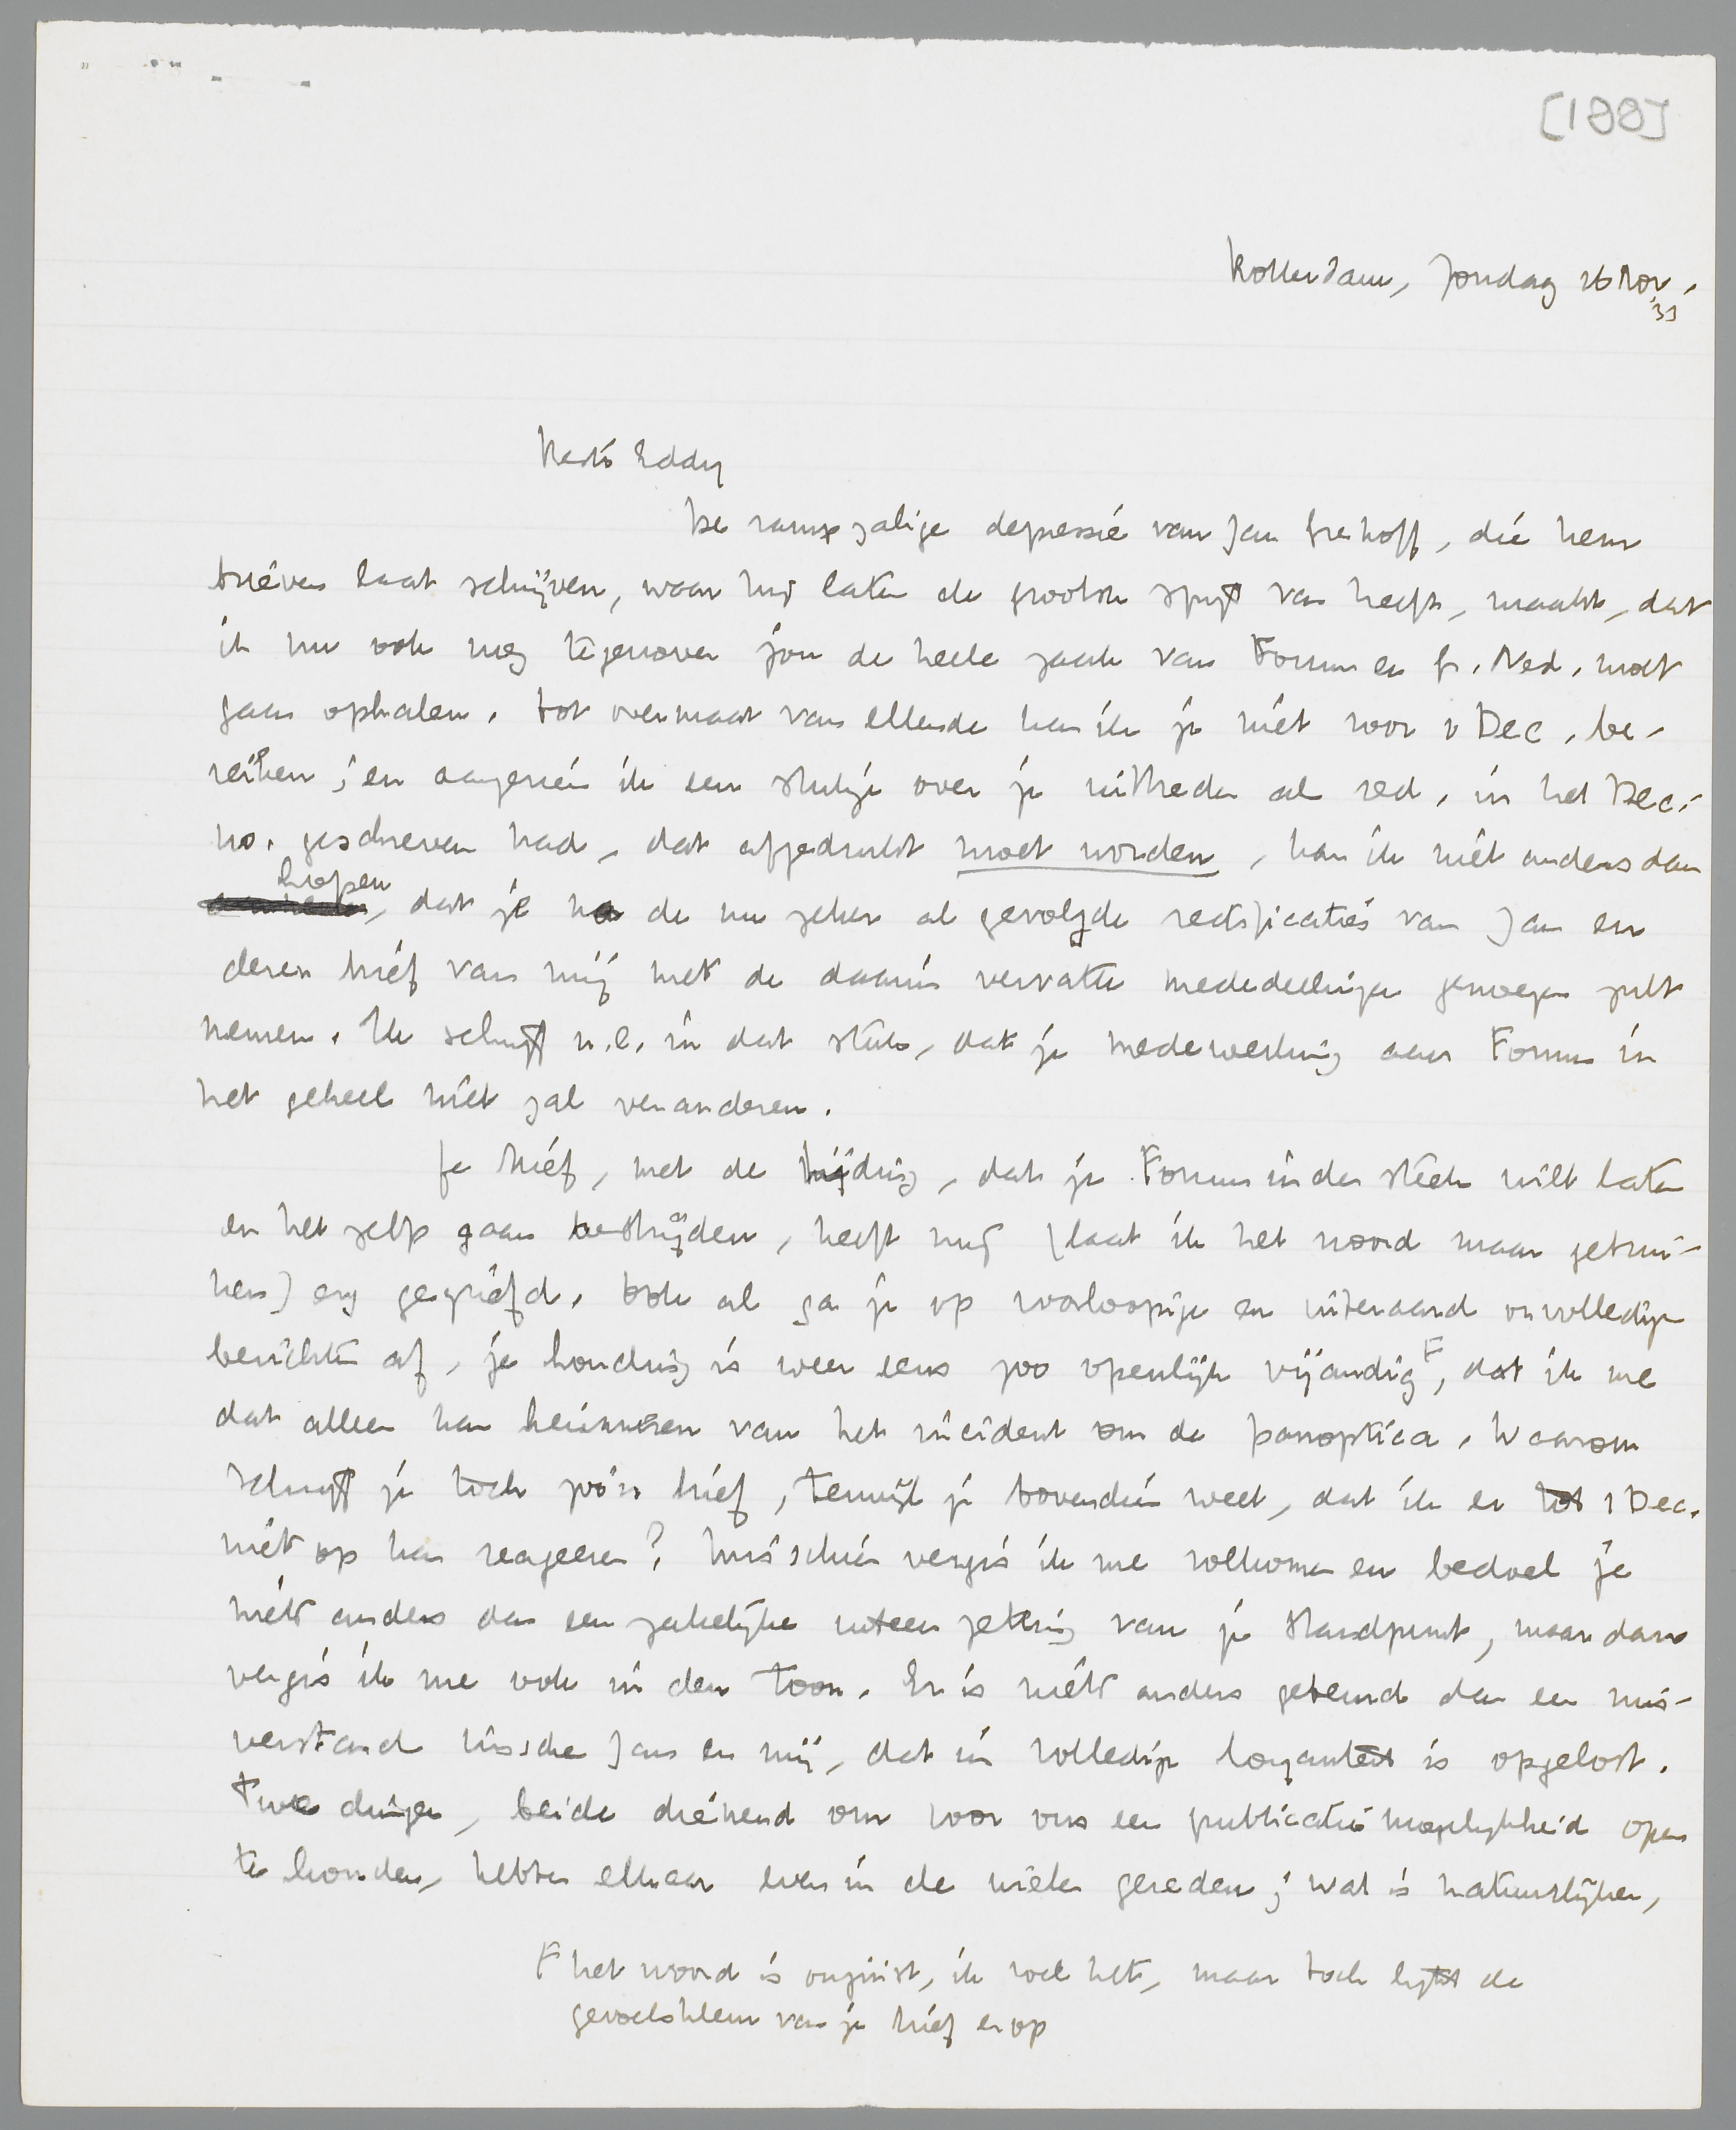 [188]
Rotterdam, Zondag 26 Nov.
'33
Beste Eddy
De rampzalige depressie van Jan Greshoff, die hem
brieven laat schrijven, waar hij later de grootste spijt van heeft, maakt, dat
ik nu ook nog tegenover jou de heele zaak van Forum en Gr. Ned. moet
gaan ophalen. Tot overmaat van ellende kan ik je niet voor 1 Dec. be-
reiken; en aangezien ik een stukje over je uittreden als red. in het Dec.-
no. geschreven had, dat afgedrukt moet worden, kan ik niet anders dan
hopen, dat je na de nu zeker al gevolgde rectificaties van Jan en
dezen brief van mij met de daarin vervatte mededeelingen genoegen zult
nemen. Ik schrijf n.l. in dat stuk, dat je medewerking aan Forum in
het geheel niet zal veranderen.
Je brief, met de tijding, dat je Forum in den steek wilt laten
en het zelf gaan bestrijden, heeft mij (laat ik het woord maar gebrui-
ken) erg gegriefd. Ook al ga je op voorloopige en uiteraard onvolledige
berichten af, je houding is weer eens zoo openlijk vijandig F, dat ik me
dat alleen kan herinneren van het incident om de panoptica. Waarom
schrijf je toch zóó'n brief, terwijl je bovendien weet, dat ik er tot 1 Dec.
niet op kan reageeren? Misschien vergis ik me volkomen en bedoel je
niets anders dan een zakelijke uiteenzetting van je standpunt, maar dan
vergis ik me ook in den toon. Er is niets anders gebeurd dan een mis-
verstand tusschen Jan en mij, dat in volledige loyauteit is opgelost.
Twee dingen, beide dienend om voor ons een publicatiemogelijkheid open
te houden, hebben elkaar even in de wielen gereden; wat is natuurlijker,
F het woord is onjuist, ik voel het, maar toch lijkt de
gevoelsklem van je brief erop